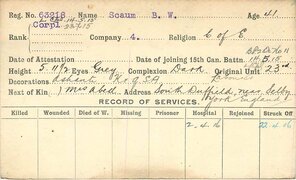 Reg. No. 63218 Name Scaum B. W. Age 41
Corpl
Rank Company 4. Religion C of E
Date of Attestation Date of Joining 15th Can. Battn. 14.5.15
Height 5' 11½ Eyes Grey Complexion Dark Original Unit 23rd
Decorations Ashanti
Next of Kin Mrs Address South Duffield, near Selby
York England
RECORD OF SERVICES.
Killed Wounded Died of W. Missing Prisoner Hospital Rejoined Struck Off
2.4.16 22.4.16